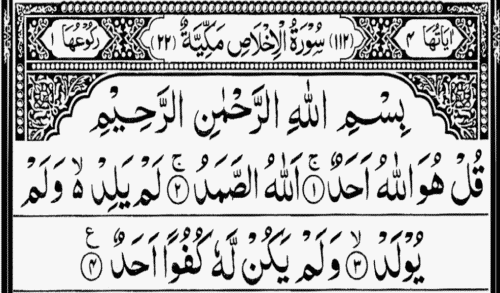 اٰيَاتُهَا ٤ (١١٢) سُوْرَةُ الْاِخْلَاصِ مَكِّيَّةٌ (٢٢) رُكُوْعُهَا ١
بِسْمِ اللّٰهِ الرَّحْمٰنِ الرَّحِيْمِ
قُلْ هُوَ اللّٰهُ اَحَدٌ ۚ ﴿١﴾ اَللّٰهُ الصَّمَدُ ۚ ﴿٢﴾ لَمْ يَلِدْ ۙ وَلَمْ
يُوْلَدْ ۙ ﴿٣﴾ وَلَمْ يَكُنْ لَّهٗ كُفُوًا اَحَدٌ ع ﴿٤﴾